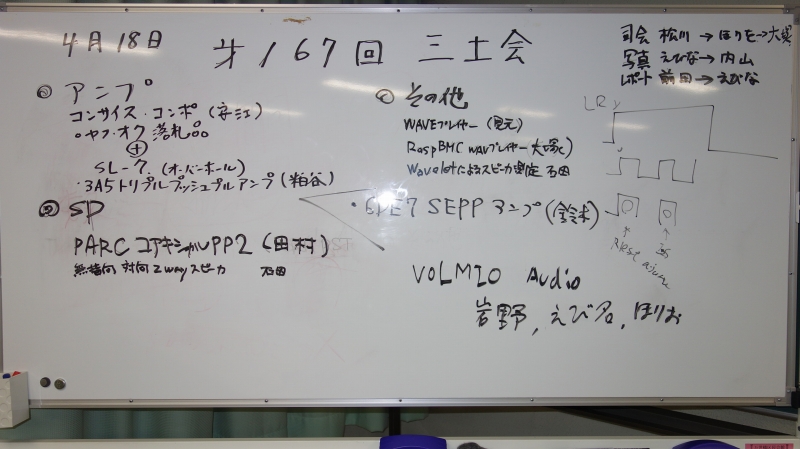 4月18日 才167回 三土会
司会 松川→ほりを→大塚
写真 えびな→内山
レポート 前田→えびな
アンプ
コンサイス・コンポ(安江)
ヤフ・オク 落札品
+
SL-7.(オーバーホール)
・3A5トリプルプッシュプルアンプ(粕谷)
SP
PARC コアキシャルPP2(田村)
無指向 対向2wayスピーカ 石田
その他
WAVEプレイヤー(見元)
RaspBMC WAVプレイヤー 大塚)
Waveletによるスピーカ測定 石田
・6DE7 SEPP アンプ(鈴木)
VOLMIO Audio
岩野,えび名,ほりお
LR